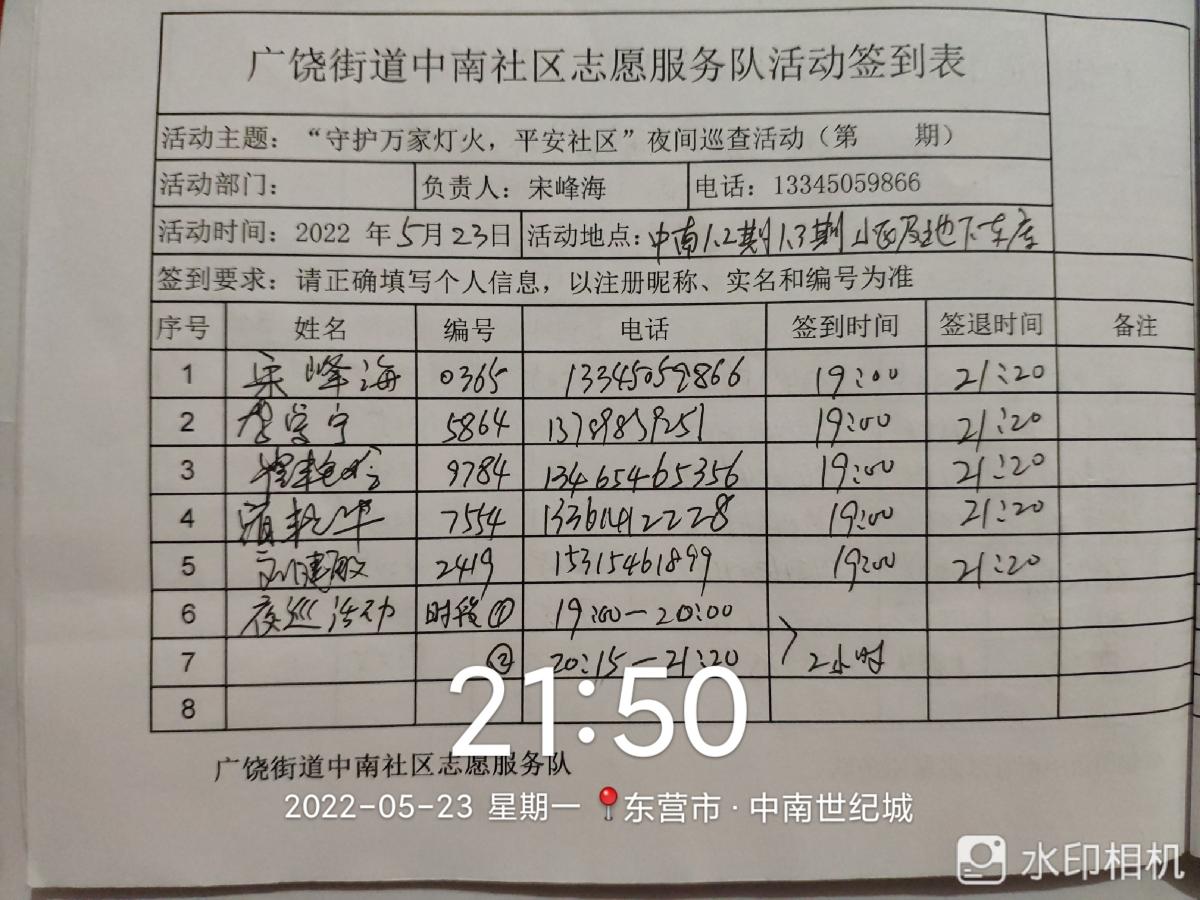 广饶街道中南社区志愿服务队活动签到表
活动主题：“守护万家灯火，平安社区”夜间巡查活动（第 期）
活动部门： 负责人：宋峰海 电话：13345059866
活动时间：2022 年5月23日 活动地点：中南1.2期1.3期小区及地下车库
签到要求：请正确填写个人信息，以注册昵称、实名和编号为准
序号 姓名 编号 电话 签到时间 签退时间 备注
1 宋峰海 0365 13345059866 19:00 21:20
2 5864 13789839251 19:00 21:20
3 9784 13465465356 19:00 21:20
4 7554 13361412228 19:00 21:20
5 刘建敏 2419 15315461899 19:00 21:20
6 夜巡活动 时段① 19:00—20:00
7 ② 20:15—21:20 2小时
8
21:50
广饶街道中南社区志愿服务队
2022-05-23 星期一 东营市·中南世纪城
水印相机